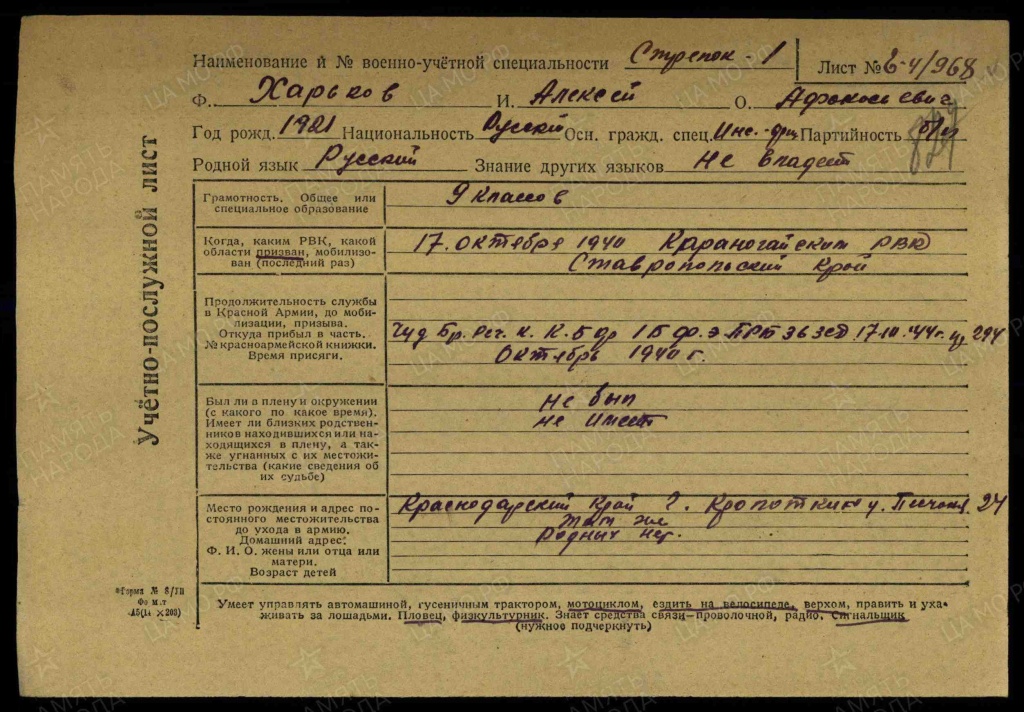 Наименование и № военно-учётной специальности Стрелок-1 Лист № 6-4/968
Ф. Харьков И. Алексей О.
Год рожд. 1921 Национальность Русский Осн. гражд. спец. Партийность б/п
Родной язык Русский Знание других языков Не владеет
УЧЁТНО-ПОСЛУЖНОЙ ЛИСТ
Грамотность. Общее или
специальное образование
9 классов
Когда, каким РВК, какой
области призван, мобилизо-
ван (последний раз)
17. октября 1940 Караногайским РВК
Ставропольский Край
Продолжительность службы
в Красной Армии, до моби-
лизации, призыва.
Откуда прибыл в часть.
№ красноармейской книжки.
Время присяги.
17.10.44г.
Октябрь 1940 г.
Был ли в плену и окружении
(с какого по какое время).
Имеет ли близких родствен-
ников находившихся или на-
ходящихся в плену, а так-
же угнанных с их местожи-
тельства (какие сведения об
их судьбе)
Не был
не имеет
Место рождения и адрес по-
стоянного местожительства
до ухода в армию.
Домашний адрес:
Ф. И. О. жены или отца или
матери.
Возраст детей
Краснодарский Край г. Кропоткин у. 24
там же
Родных нет.
Форма № 8/III
Формат
А5(148×203)
Умеет управлять автомашиной, гусеничным трактором, мотоциклом, ездить на велосипеде, верхом, править и уха-
живать за лошадьми. Пловец, физкультурник. Знает средства связи-проволочной, радио. Сигнальщик
(нужное подчеркнуть)
ПАМЯТЬ НАРОДА
ЦАМО.РФ